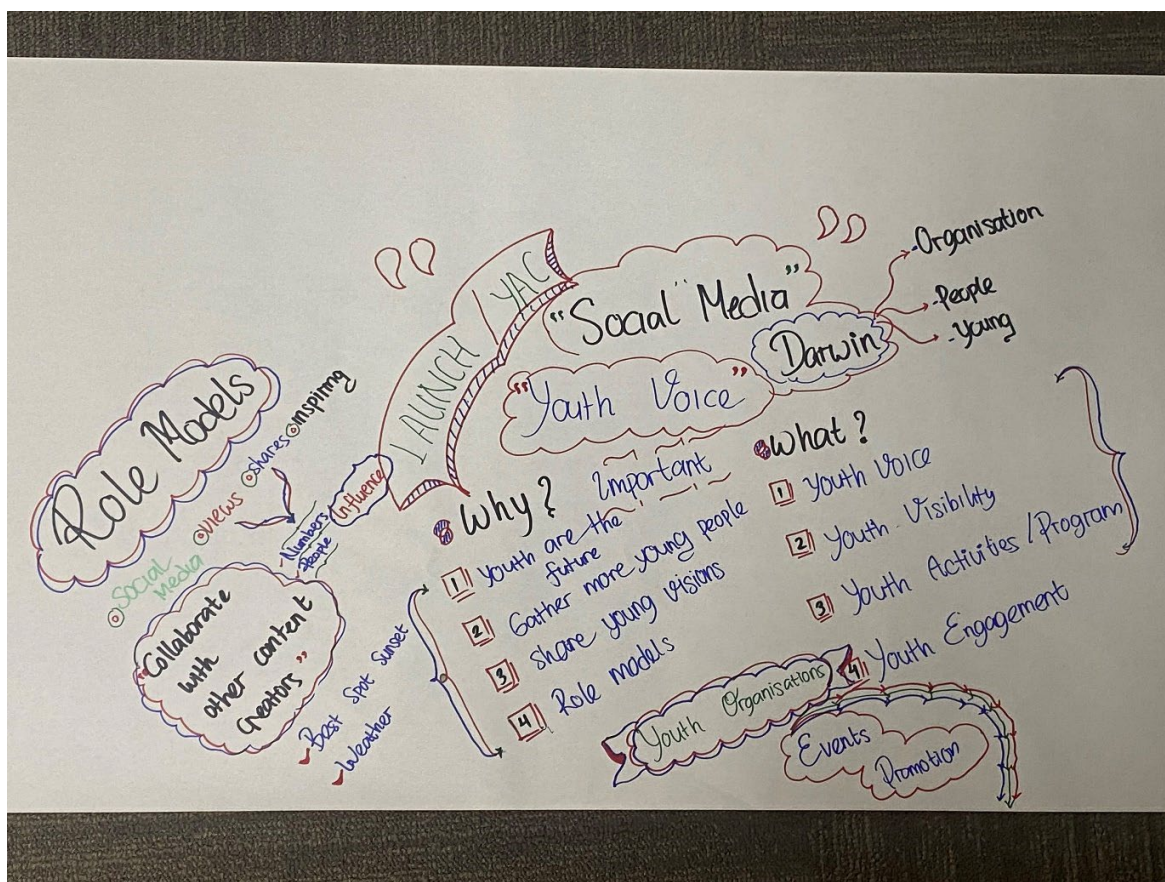 LAUNCH / YAC
"Social Media"
Darwin
-Organisation
-People
-Young
"Youth Voice"
Role Models
Social
Media
views
shares
inspiring
Numbers
-People
Influence
"Collaborate
with
other content
Creators"
Best Spot Sunset
Weather
Why?
Important
1 Youth are the
future
2 Gather more young people
3 share young visions
4 Role models
What?
1 Youth Voice
2 Youth Visibility
3 Youth Activities / Program
4 Youth Engagement
Youth Organisations
Events
Promotion